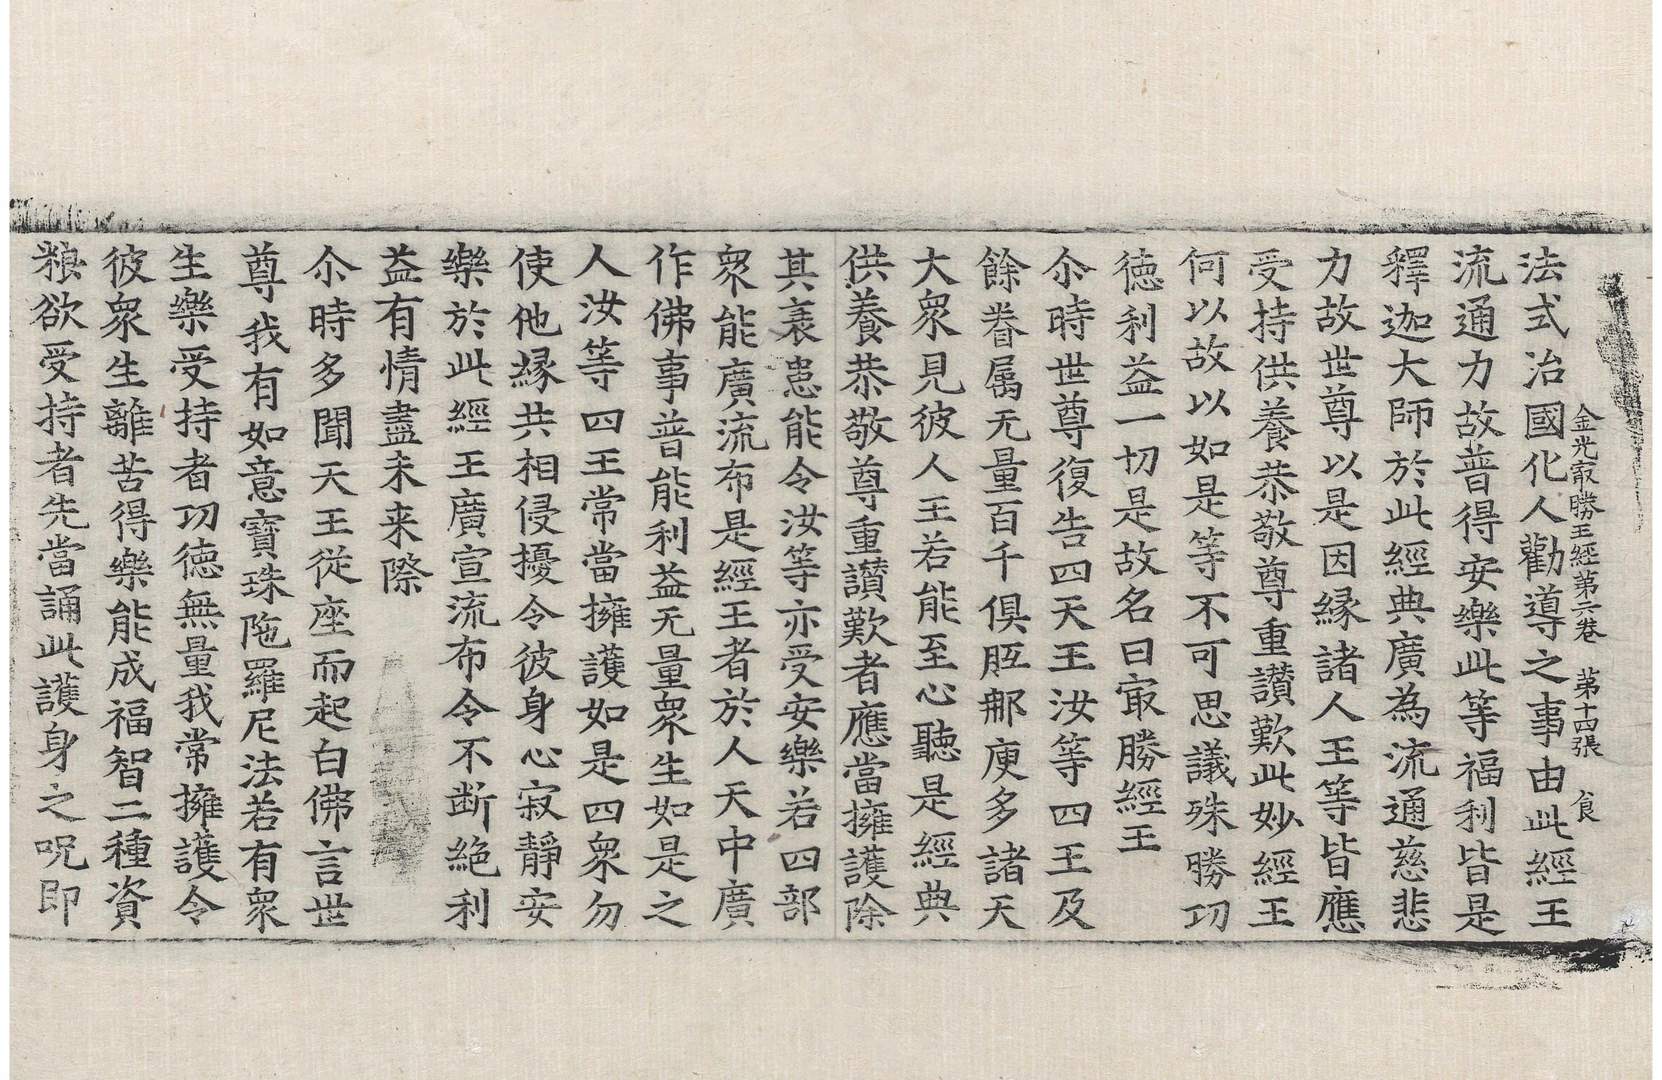 金光㝡勝王經第六卷　第十四張　食
法式治國化人勸導之事由此經王
流通力故普得安樂此等福利皆是
釋迦大師於此經典廣為流通慈悲
力故世尊以是因緣諸人王等皆應
受持供養恭敬尊重讃歎此妙經王
何以故以如是等不可思議殊勝功
德利益一切是故名曰㝡勝經王
尒時世尊復告四天王汝等四王及
餘眷属无量百千俱胝那庾多諸天
大衆見彼人王若能至心聽是經典
供養恭敬尊重讃歎者應當擁護除
其衰患能令汝等亦受安樂若四部
衆能廣流布是經王者於人天中廣
作佛事普能利益无量衆生如是之
人汝等四王常當擁護如是四衆勿
使他緣共相侵擾令彼身心寂靜安
樂於此經王廣宣流布令不断絶利
益有情盡未来際
尒時多聞天王從座而起白佛言世
尊我有如意寶珠陁羅尼法若有衆
生樂受持者功德無量我常擁護令
彼衆生離苦得樂能成福智二種資
粮欲受持者先當誦此護身之呪即